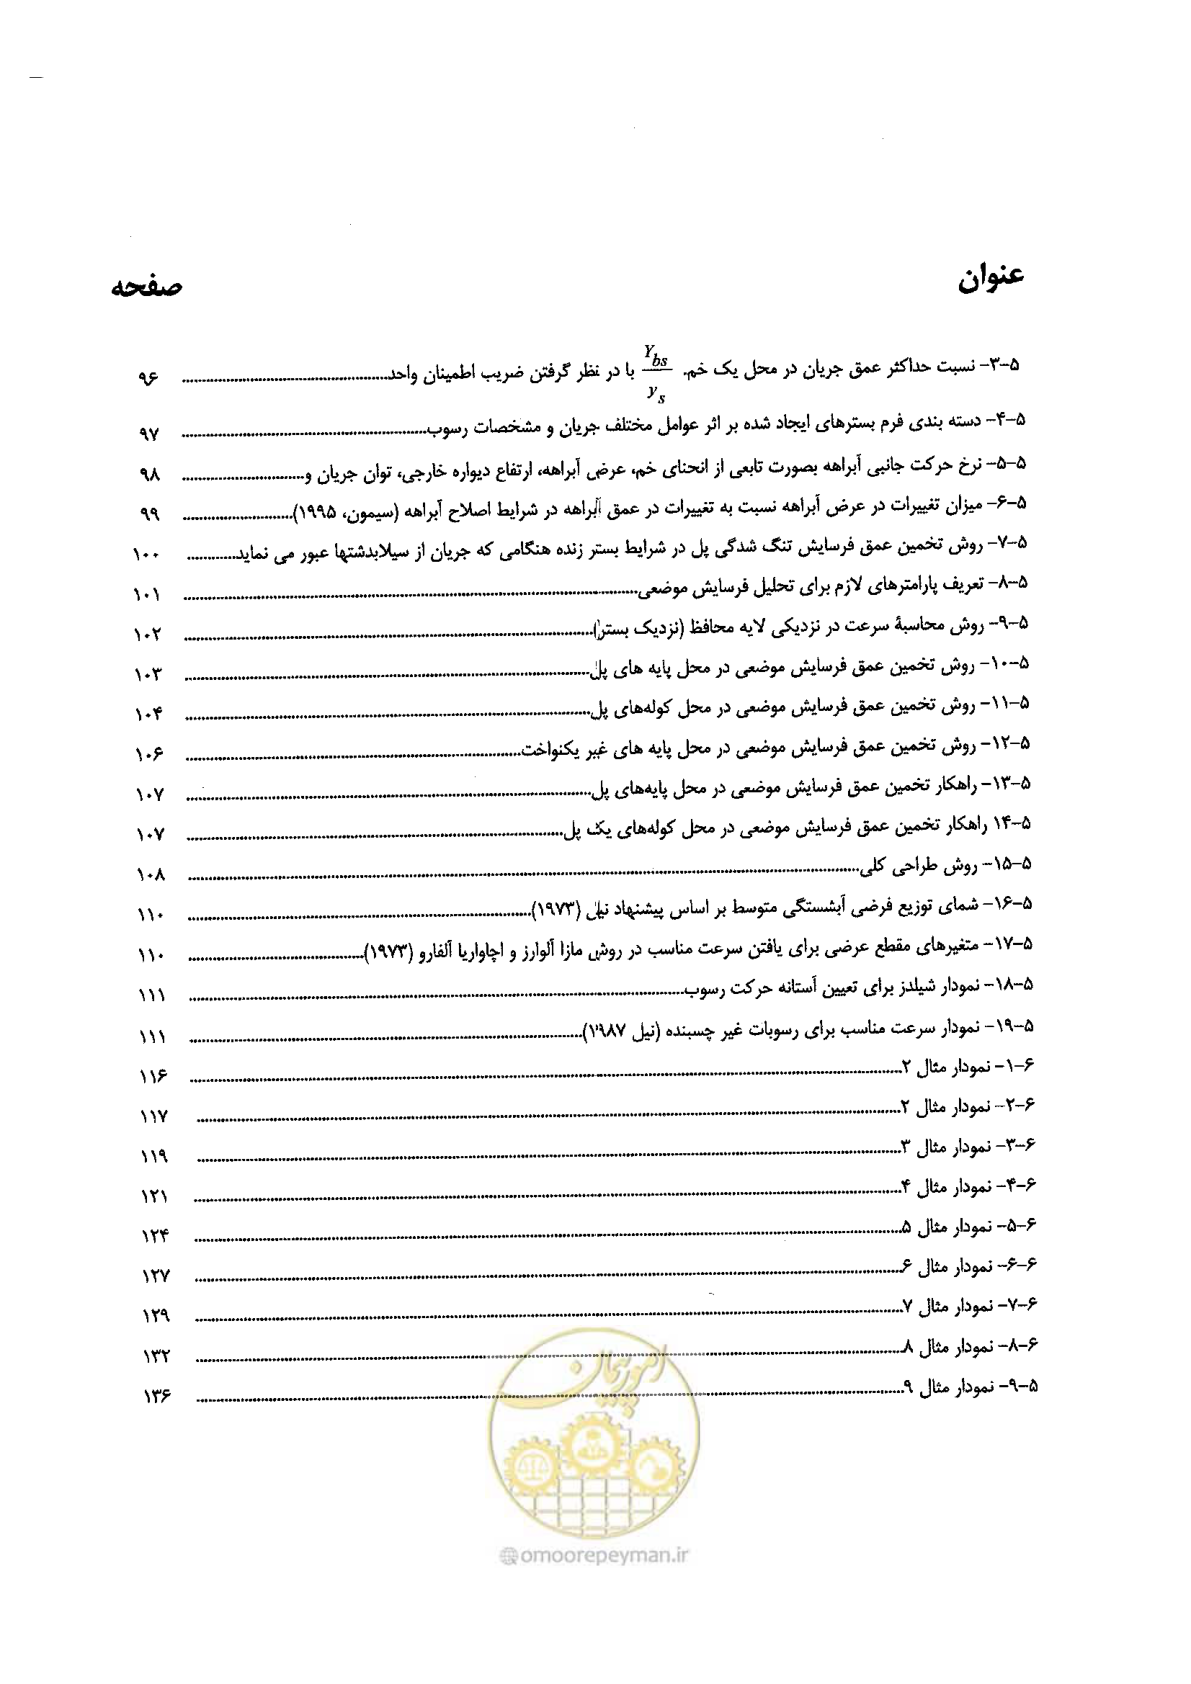 عنوان
صفحه
۵-۳- نسبت حداکثر عمق جریان در محل یک خم. Ybs/ys با در نظر گرفتن ضریب اطمینان واحد ۹۶
۵-۴- دسته بندی فرم بسترهای ایجاد شده بر اثر عوامل مختلف جریان و مشخصات رسوب ۹۷
۵-۵- نرخ حرکت جانبی آبراهه بصورت تابعی از انحنای خم، عرض آبراهه، ارتفاع دیواره خارجی، توان جریان و ۹۸
۵-۶- میزان تغییرات در عرض آبراهه نسبت به تغییرات در عمق آبراهه در شرایط اصلاح آبراهه (سیمون، ۱۹۹۵) ۹۹
۵-۷- روش تخمین عمق فرسایش تنگ شدگی پل در شرایط بستر زنده هنگامی که جریان از سیلابدشتها عبور می نماید ۱۰۰
۵-۸- تعریف پارامترهای لازم برای تحلیل فرسایش موضعی ۱۰۱
۵-۹- روش محاسبهٔ سرعت در نزدیکی لایه محافظ (نزدیک بستر) ۱۰۲
۵-۱۰- روش تخمین عمق فرسایش موضعی در محل پایه های پل ۱۰۳
۵-۱۱- روش تخمین عمق فرسایش موضعی در محل کوله‌های پل ۱۰۴
۵-۱۲- روش تخمین عمق فرسایش موضعی در محل پایه های غیر یکنواخت ۱۰۶
۵-۱۳- راهکار تخمین عمق فرسایش موضعی در محل پایه‌های پل ۱۰۷
۵-۱۴ راهکار تخمین عمق فرسایش موضعی در محل کوله‌های یک پل ۱۰۷
۵-۱۵- روش طراحی کلی ۱۰۸
۵-۱۶- شمای توزیع فرضی آبشستگی متوسط بر اساس پیشنهاد نیل (۱۹۷۳) ۱۱۰
۵-۱۷- متغیرهای مقطع عرضی برای یافتن سرعت مناسب در روش مازا آلوارز و اچاواریا آلفارو (۱۹۷۳) ۱۱۰
۵-۱۸- نمودار شیلدز برای تعیین آستانه حرکت رسوب ۱۱۱
۵-۱۹- نمودار سرعت مناسب برای رسوبات غیر چسبنده (نیل ۱۹۸۷) ۱۱۱
۶-۱- نمودار مثال ۲ ۱۱۶
۶-۲- نمودار مثال ۲ ۱۱۷
۶-۳- نمودار مثال ۳ ۱۱۹
۶-۴- نمودار مثال ۴ ۱۲۱
۶-۵- نمودار مثال ۵ ۱۲۴
۶-۶- نمودار مثال ۶ ۱۲۷
۶-۷- نمودار مثال ۷ ۱۲۹
۶-۸- نمودار مثال ۸ ۱۳۲
۵-۹- نمودار مثال ۹ ۱۳۶
امور پیمان
omoorepeyman.ir